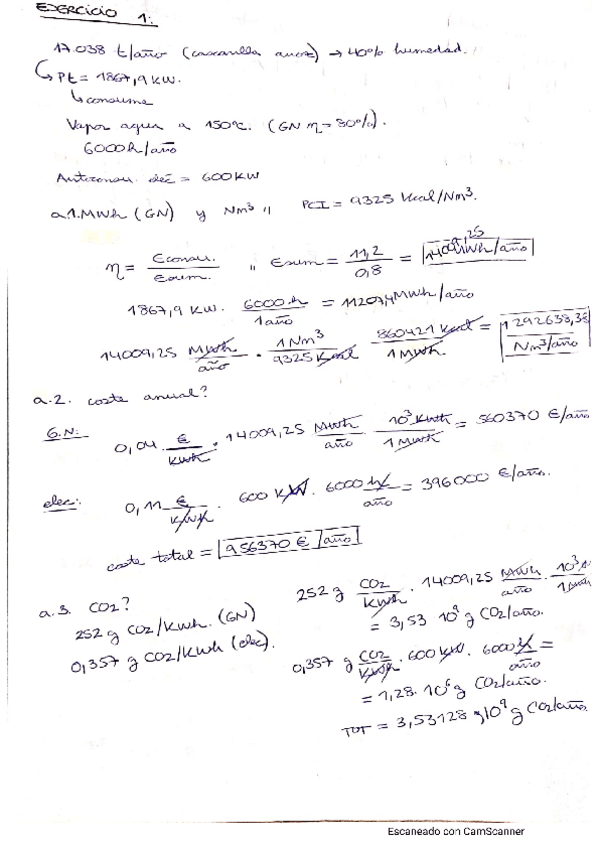 EJERCICIO 1:
17.038 t/año (cascarilla arroz) → 40% humedad.
↳ Pt = 1867,9 KW.
↳ consume
Vapor agua a 150ºC. (GN η = 80%).
6000h/año
Autoconsu. elec = 600 KW
a.1. MWh (GN) y Nm³ " PCI = 9325 Kcal/Nm³.
η = Econsu. / Esum. " Esum = 11,2 / 0,8 = 14009,25 MWh/año
1867,9 KW. 6000h / 1 año = 11207,4 MWh/año
14009,25 MWh/año · 1 Nm³ / 9325 Kcal · 860421 Kcal / 1 MWh = 1292638,38 Nm³/año
a.2. coste anual?
G.N: 0,04 €/KWh · 14009,25 MWh/año · 10³ KWh / 1 MWh = 560370 €/año
elec: 0,11 €/KWh · 600 KW · 6000 h/año = 396000 €/año.
coste total = 956370 €/año
a.3. CO2? 252 g CO2/KWh · 14009,25 MWh/año · 10³ / 1 MWh
252 g CO2/KWh. (GN) = 3,53 10⁹ g CO2/año.
0,357 g CO2/KWh (elec). 0,357 g CO2/KWh · 600 KW · 6000 h/año =
= 1,28 · 10⁶ g CO2/año.
TOT = 3,53128 · 10⁹ g CO2/año
Escaneado con CamScanner